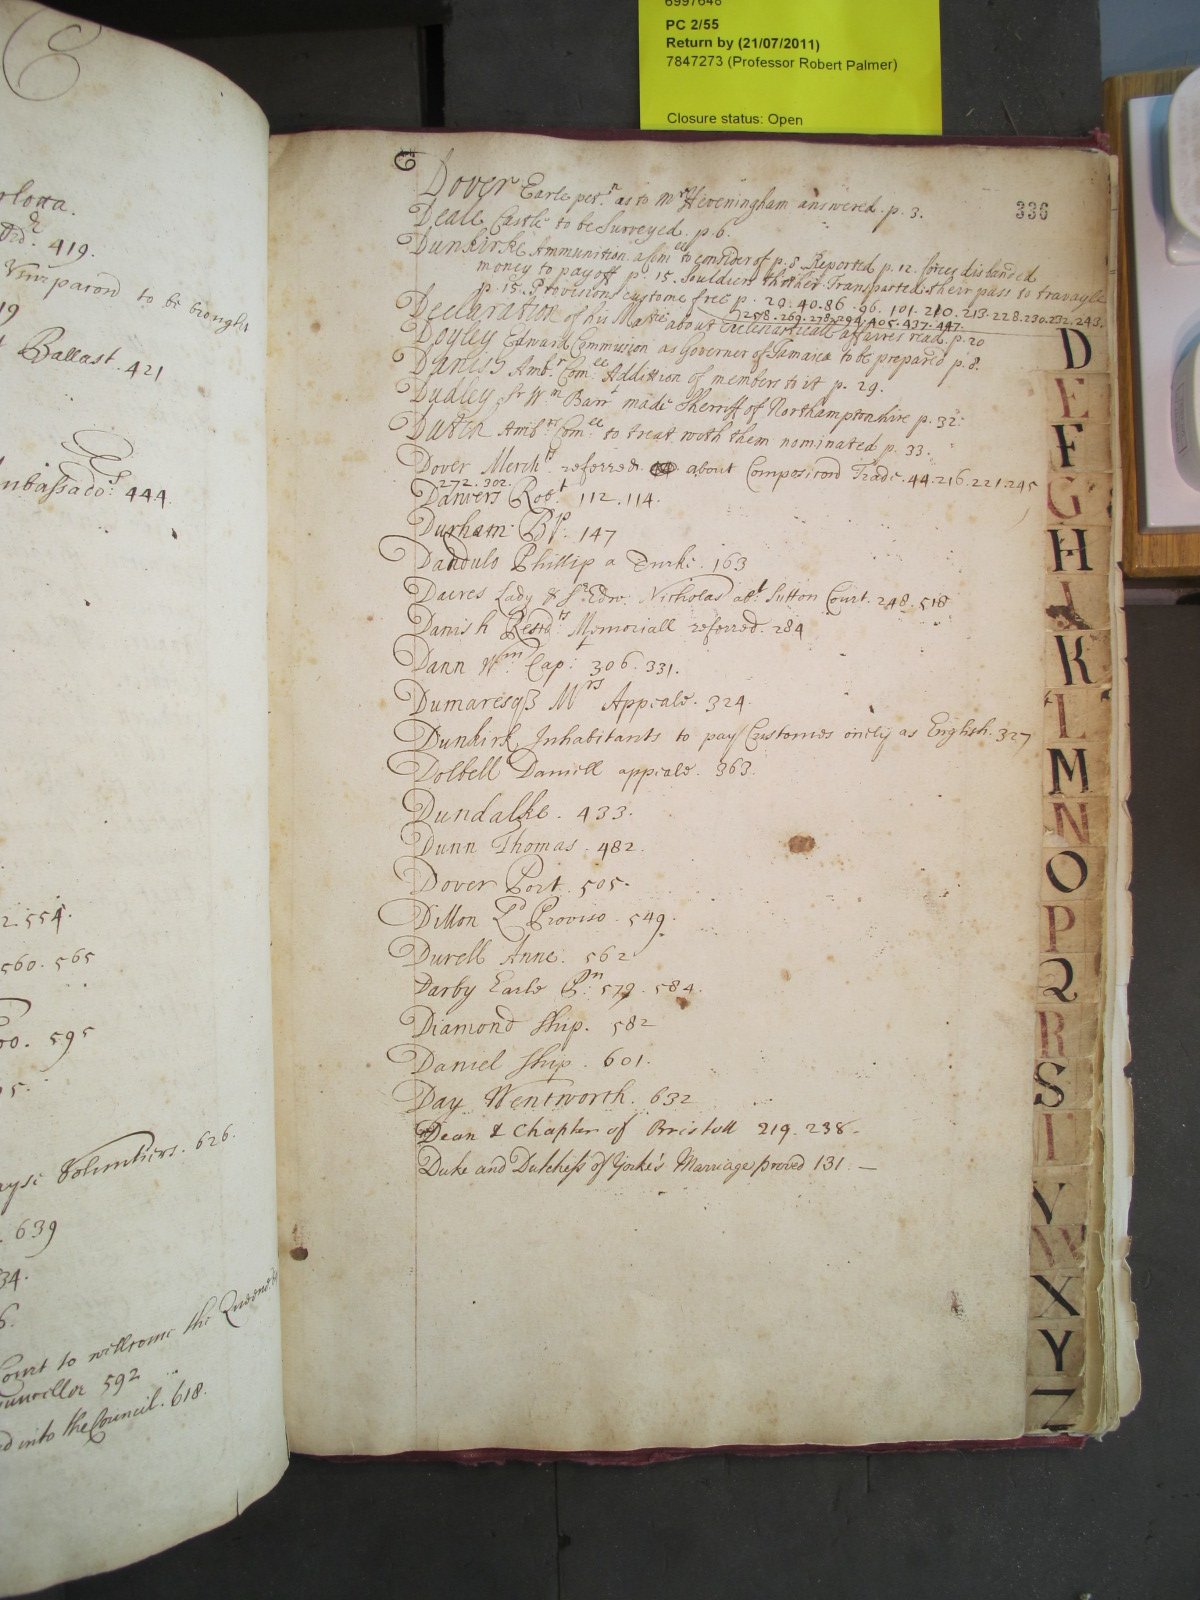 6997648
PC 2/55
Return by (21/07/2011)
7847273 (Professor Robert Palmer)
Closure status: Open
rlotta.
419.
paron to be brought
19
Ballast. 421
mbassado.rs 444.
2. 554.
560. 565
oo. 595
5.
Voluntiers. 626.
. 639
34.
6.
Court to wellcome the Queene
ouncellor 592
d into the Council. 618.
336
Dover Earle pet.n as to Mr Heveningham answered. p. 3.
Deale Castle to be Surveyed. p. 6.
Dunkirke Ammunition a Com.ee to consider of p. 8 Reported p. 12. forces disbanded
money to pay off p. 15. Souldiers thither Transported their pass to travayle
p. 15. Provisions custome free p. 29. 40. 86. 96. 101. 210. 213. 228. 230. 232. 243.
258. 269. 273. 294. 405. 437. 447.
Declaration of his Ma.tie about Ecclesiasticall affaires read. p. 20
Doyley Edward Commission as Governer of Jamaica to be prepared p. 8.
Danish Amb.r Com.ee Addition of members to it p. 29.
Dudley Sr Wm Barr.t made Sherriff of Northamptonshire p. 32.
Dutch Amb.rs Com.ee to treat with them nominated p. 33.
Dover Merch.ts referred about Composicon Trade. 44. 216. 221. 245
272. 302.
Danvers Rob.t 112. 114.
Durham Bp. 147
Dandulo Phillip a Turke. 163
Dacres Lady & Sr Edw. Nicholas ab.t Sutton Court. 248. 518
Danish Resid.ts Memoriall referred. 284
Dann Wm Cap.t 306. 331.
Dumaresq Mrs Appeale. 324.
Dunkirk Inhabitants to pay Customes onely as English. 327
Dolbell Daniell appeale. 363.
Dundalke. 433.
Dunn Thomas. 482.
Dover Port. 505.
Dillon Ld Proviso. 549.
Durell Anne. 562
Darby Earle P.n 579. 584.
Diamond Ship. 582
Daniel Ship. 601.
Day Wentworth. 632
Dean & Chapter of Bristoll 219. 238.
Duke and Dutchess of Yorke's Marriage proved 131. —
D
E
F
G
H
I
K
L
M
N
O
P
Q
R
S
T
V
W
X
Y
Z